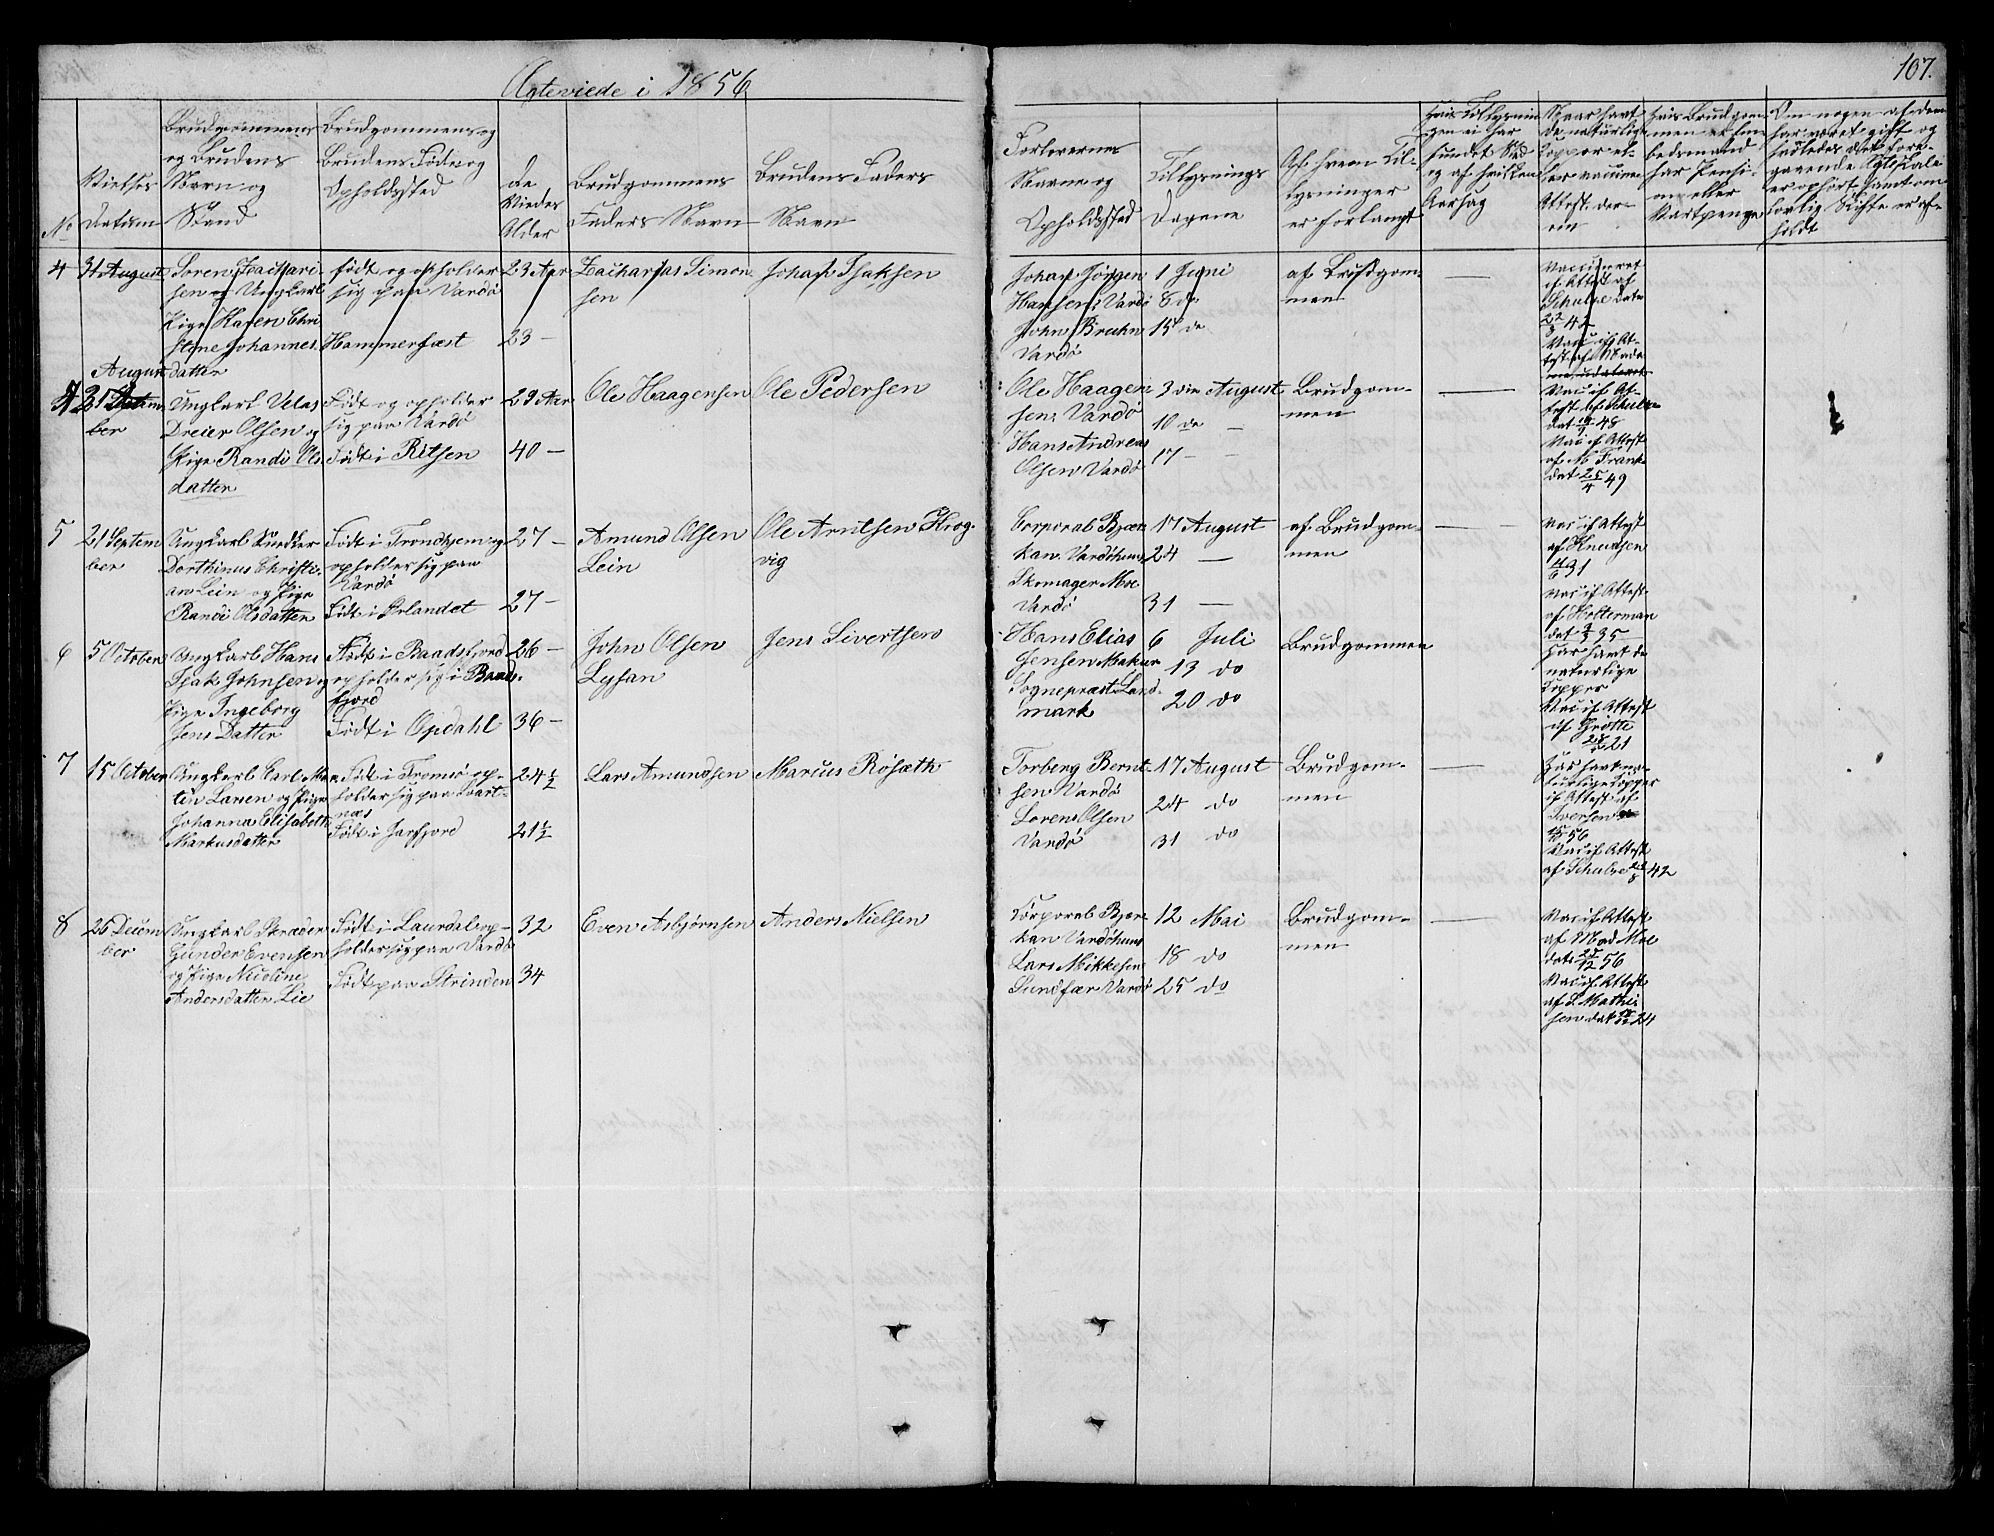 107.
Ægteviede i 1856
No
Vielses
Datum
Brudgommens
og Brudens
Navn og
Stand
Brudgommens og
Brudens Føde og
Opholdssted
de
Viedes
Alder
Brudgommens
Faders Navn
Brudens Faders
Navn
Forlovernes
Navne og
Opholdssted
Tillysnings
Dagene
Af hvem Til-
lysninger
er forlangt
Hvis Tillysnin
gen ei har
fundet Sted
og af hvilken
Aarsag
Naar havt
de naturlige
Kopper el-
ler vaccine
Attest der-
om
Hvis Brudgom-
men er Em-
bedsmand
har Pensi-
on eller
Vartpenge
Om nogen af dem
har været gift og
saaledes det fore-
gaaende Ægteskab
er ophørt samt om
lovlig Skifte er af-
holdt
4
31 August
Søren Zachari-
sen og Ungkarl
Pige Karen Chri
stine Johannes
datter
født og opholder
sig paa Vardø
Hammerfæst
23 Aar
23 -
Zacharias Simon
sen
Johan Isaksen
Johan Jørgen
Hansen Vardø
John Bruhn
Vardø
1 Juni
8 do
15 do
af Brudgom-
men
Vaccineret
if Attest af
Schulze dat
22/8 42
Vac if At-
test af Made
4
August
31
ber
Ungkarl Velas
Dreier Olsen og
Pige Randi Ols
datter
Født og opholder
sig paa Vardø
Født i Ritsen
29 Aar
40 -
Ole Haagensen
Ole Pedersen
Ole Haagen
sen Vardø
Hans Andreas
Olsen Vardø
3 die August
10 de -
17 - -
Brudgom-
men
Vac if At-
test af Schulze
dat 48
Vac if Attest
af M Frank
dat 25/4 49
5
21 Septem
ber
Ungkarl Snedker
Dorthinus Christi-
an Lein og Pige
Randi Olsdatter
Født i Trondhjem og
opholder sig paa
Vardø
Født i Ørlandet
27 -
27 -
Amund Olsen
Lein
Ole Arntsen Hrog-
vig
Corporal Bjær
kan Vardøhuus
Skomager Moe
Vardø
17 August
24 -
31 -
af Brudgom-
men
Vac if Attest
af Knudsen
4/6 31
Vac if Attest
af Holterman
dat 35
6
5 October
Ungkarl Hans
Isak Johnsen og
Pige Ingeborg
Jens Datter
Født i Baadsfjord
opholder sig i Baads-
fjord
Født i Opdahl
26 -
36 -
John Olsen
Lysan
Jens Sivertsen
Hans Elias
Jensen Makur
Sognepræst Land-
mark
6 Juli
13 do
20 do
Brudgommen
Har havt de
naturlige
Kopper
Vac if Attest
af Grøtte
21
7
15 October
Ungkarl Carl Mor
tin Larsen og Pige
Johanna Elisabeth
Markusdatter
Født i Tromsø op-
holder sig paa Svart-
næs
Født i Jarfjord
24½
21½
Lars Amundsen
Marcus Rosæth
Torberg Bernt
sen Vardø
Soren Olsen
Vardø
17 August
24 do
31 do
Brudgom-
men
Har havt na-
turlige Kopper
if Attest af
Iversen
56
Vac if Attest
af Schulze 22/8 42
8
26 Decem
ber
Ungkarl Skræder
Gunder Evensen
og Pige Nicoline
Andersdatter Lie
Født i Laurdal op-
holder sig paa Vardø
Født paa Strinden
32
34
Even Asbjørnsen
Anders Nielsen
Corporal Bjær
kan Vardøhuus
Lars Mikkelsen
Sundfær Vardø
12 Mai
18 do
25 do
Brudgom-
men
Vac if Attest
af Mad Moe
dat 56
Vac if Attest
af S Mathi-
sen dat 24